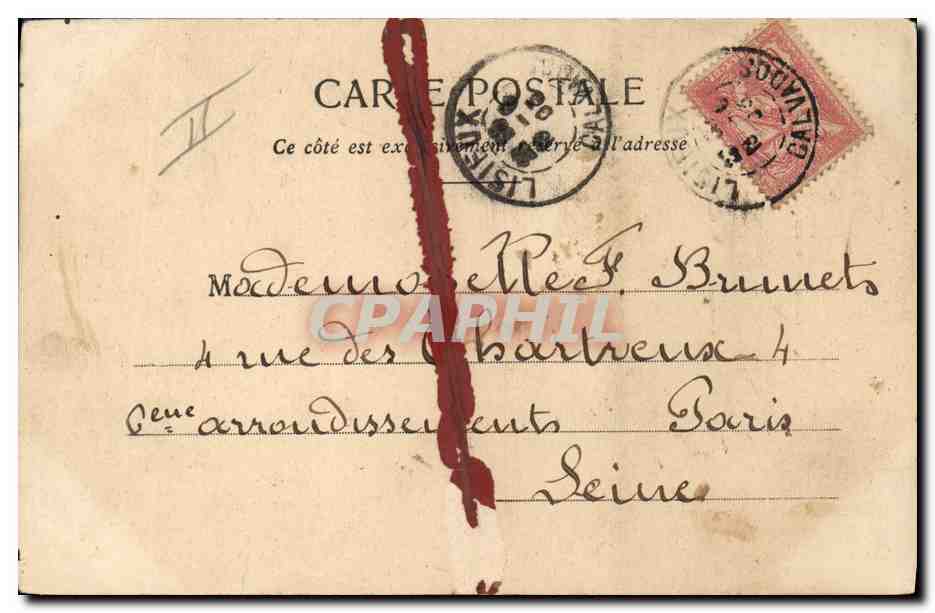 II
CARTE POSTALE
Ce côté est exclusivement réservé à l'adresse
LISIEUX CALVADOS
LISIEUX CALVADOS
Mademoiselle F. Brunets
4 rue des Chartreux 4
6eme arrondissements Paris
Seine
CPAPHIL